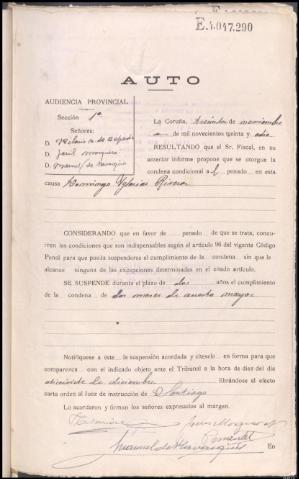 E.1.047.290
AUTO
AUDIENCIA PROVINCIAL
Sección 1ª
Señores:
D.
D.
D. Manuel
La Coruña, de noviembre
de mil novecientos treinta y
RESULTANDO que el Sr. Fiscal, en
su anterior informe propone que se otorgue la
condena condicional a l penado en esta
causa Domingo Iglesias
CONSIDERANDO que en favor de penado de que se trata, concu-
rren las condiciones que son indispensables según el artículo 96 del vigente Código
Penal para que pueda suspenderse el cumplimiento de la condena, sin que le
alcance ninguna de las excepciones determinadas en el citado artículo.
SE SUSPENDE durante el plazo de dos años el cumplimiento
de la condena de dos meses de arresto mayor
Notifíquese a éste la suspensión acordada y cítesele en forma para que
comparezca con el indicado objeto ante el Tribunal a la hora de diez del día
de diciembre librándose al efecto
carta orden al Juez de instrucción de Santiago
Lo acordaron y firman los señores expresados al margen.
En